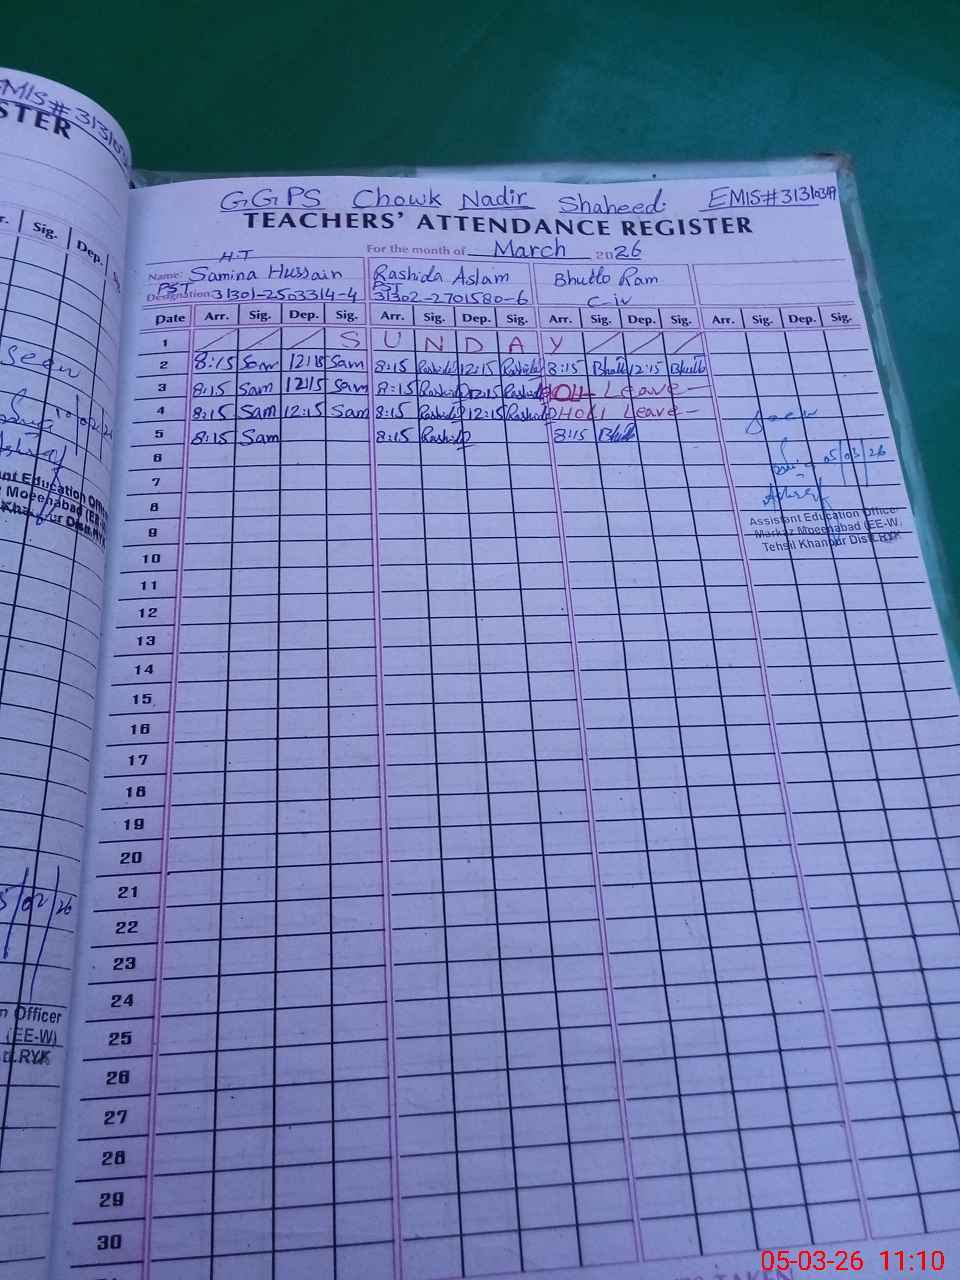 EMIS# 3131
STER
Sig. Dep.
seen
10/02/2
nt Education Offi
Moeenabad (EE-
Khanpur Distt.RY
5/02/26
n Officer
(EE-W)
tt.RYK
GGPS Chowk Nadir Shaheed. EMIS#
TEACHERS' ATTENDANCE REGISTER
For the month of March 2026
H.T
Name: Samina Hussain Rashida Aslam Bhutto Ram
PST PST
Designation: 31301-2503314-4 31302-2701580-6 C-iv
Date Arr. Sig. Dep. Sig. Arr. Sig. Dep. Sig. Arr. Sig. Dep. Sig. Arr. Sig. Dep. Sig.
1 S U N D A Y
2 8:15 Sam 12:15 Sam 8:15 Rashida 12:15 Rashida 8:15 Bhutto 12:15 Bhutto
3 8:15 Sam 12:15 Sam 8:15 Rashida 12:15 Rashida HOLI Leave-
4 8:15 Sam 12:15 Sam 8:15 Rashida 12:15 Rashida HOLI Leave-
5 8:15 Sam 8:15 Rashida 8:15 Bhutto
Seen
05/03/26
Assistant Education Officer
Markaz Moeenabad (EE-W)
Tehsil Khanpur Distt.RYK
6
7
8
9
10
11
12
13
14
15
16
17
18
19
20
21
22
23
24
25
26
27
28
29
30
05-03-26 11:10